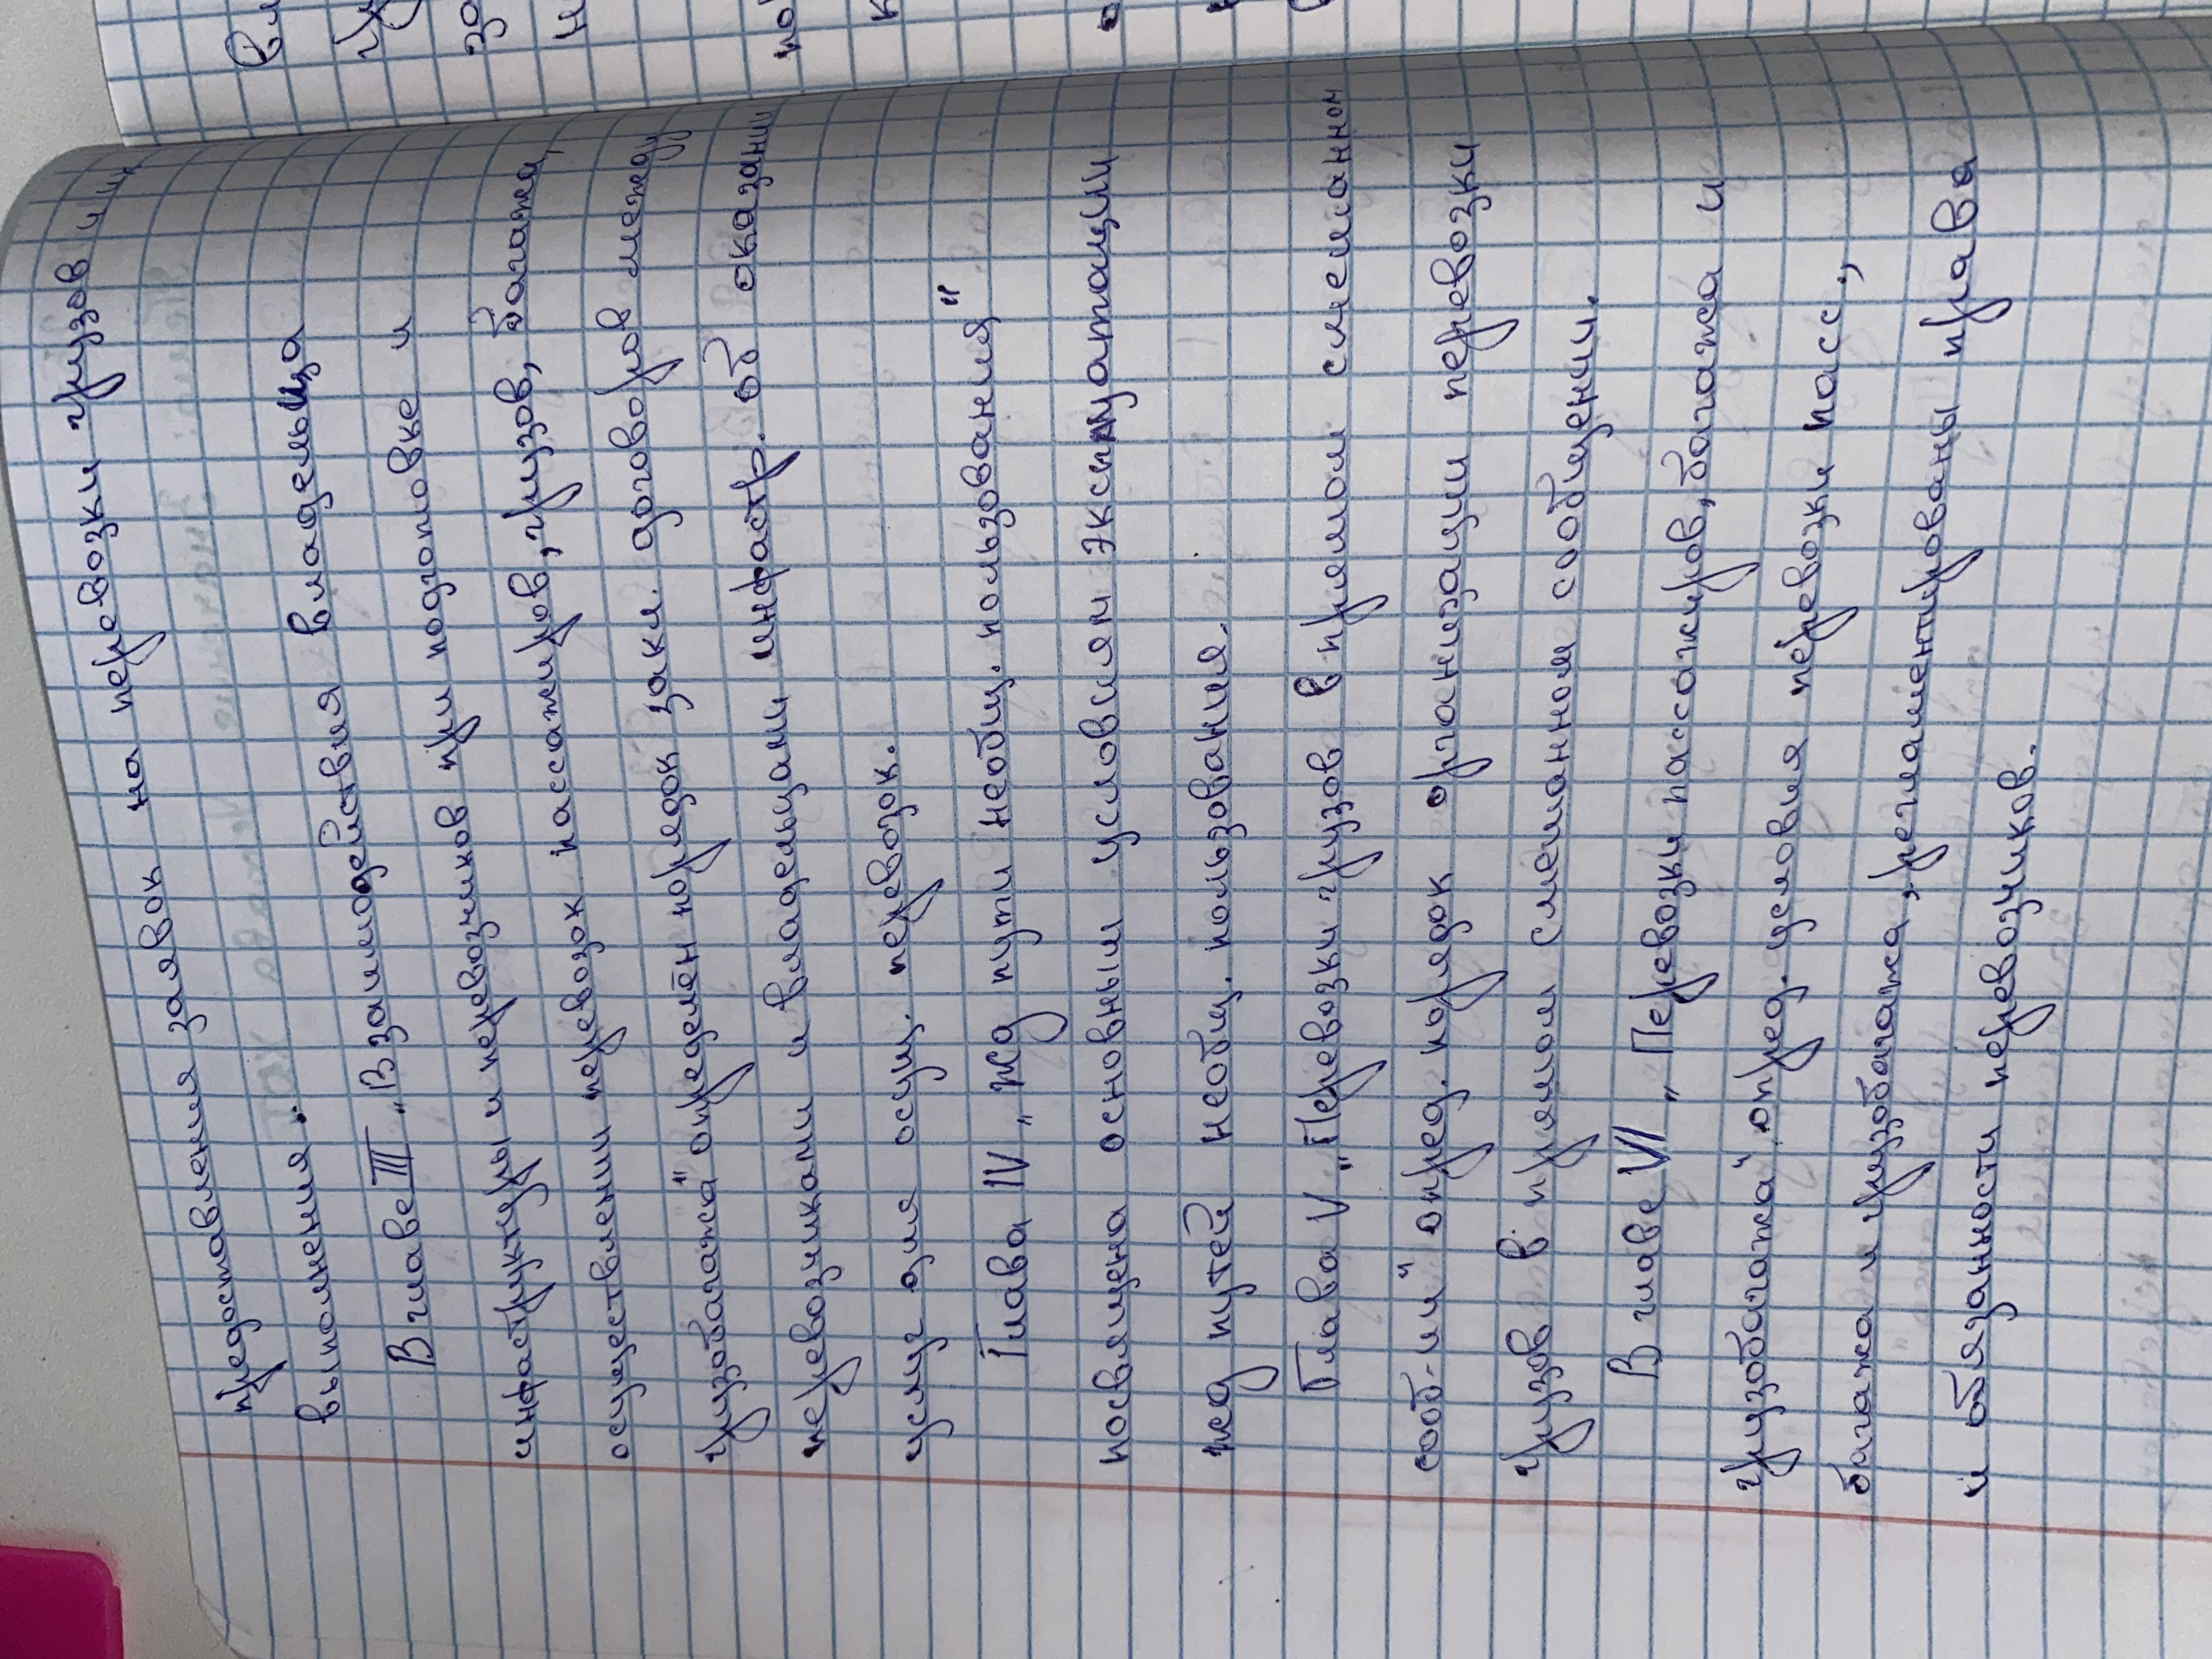 предоставления заявок на перевозки грузов и их
выполнения.
В главе III „Взаимодействия владельца
инфраструктуры и перевозчиков при подготовке и
осуществлении перевозок пассажиров, грузов, багажа,
грузобагажа" определён порядок закл. договоров между
перевозчиками и владельцами инфрастр. об оказании
услуг для осущ. перевозок.
Глава IV „ЖД пути необщ. пользования"
посвящена основным условиям эксплуатации
жд путей необщ. пользования.
Глава V „Перевозки грузов в прямом смешанном
сооб-ии" опред. порядок организации перевозки
грузов в прямом смешанном сообщении.
В главе VI „Перевозки пассажиров, багажа и
грузобагажа" опред. условия перевозки пасс.,
багажа и грузобагажа, регламентированы права
и обязанности перевозчиков.